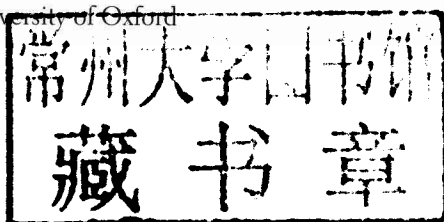 versity of Oxford
常州大学图书馆
藏书章